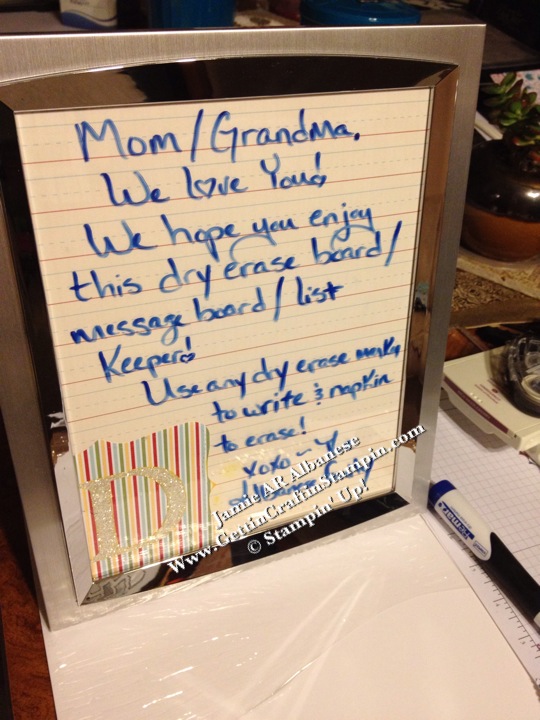 Mom/Grandma,
We love You!
We hope you enjoy
this dry erase board/
message board/list
Keeper!
Use any dry erase marker
to write & napkin
to erase!
xoxo ~
D
Jamie AR Albanese
www.GettinCraftinStampin.com
© Stampin' Up!